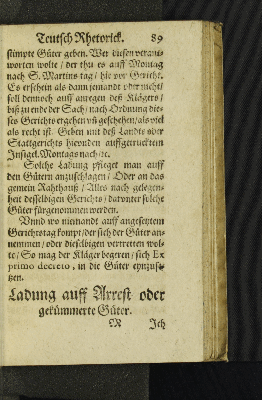 Teutsch Rhetorick. 89
stimpte Güter geben. Wer diesen verant-
worten wolte / der thu es auff Montag
nach S. Martins tag / hie vor Gericht.
Es erschein als dann jemandt oder nicht /
soll dennoch auff anregen deß Klägers /
biß zu ende der Sach / nach Ordnung die-
ses Gerichts ergehen vñ geschehen / als viel
als recht ist. Geben mit deß Landts oder
Stattgerichts hierunden auffgetrucktem
Insigel. Montags nach / ꝛc.
Solche Ladung pfleget man auff
den Gütern anzuschlagen / Oder an das
gemein Rahthauß / Alles nach gelegen-
heit desselbigen Gerichts / darunter solche
Güter fürgenommen werden.
Vnnd wo niemandt auff angesetztem
Gerichtstag kompt / der sich der Güter an-
nemmen / oder dieselbigen vertretten wol-
te / So mag der Kläger begeren / sich Ex
primo decreto, in die Güter eynzuse-
tzen.
Ladung auff Arrest oder
gekümmerte Güter.
M Ich